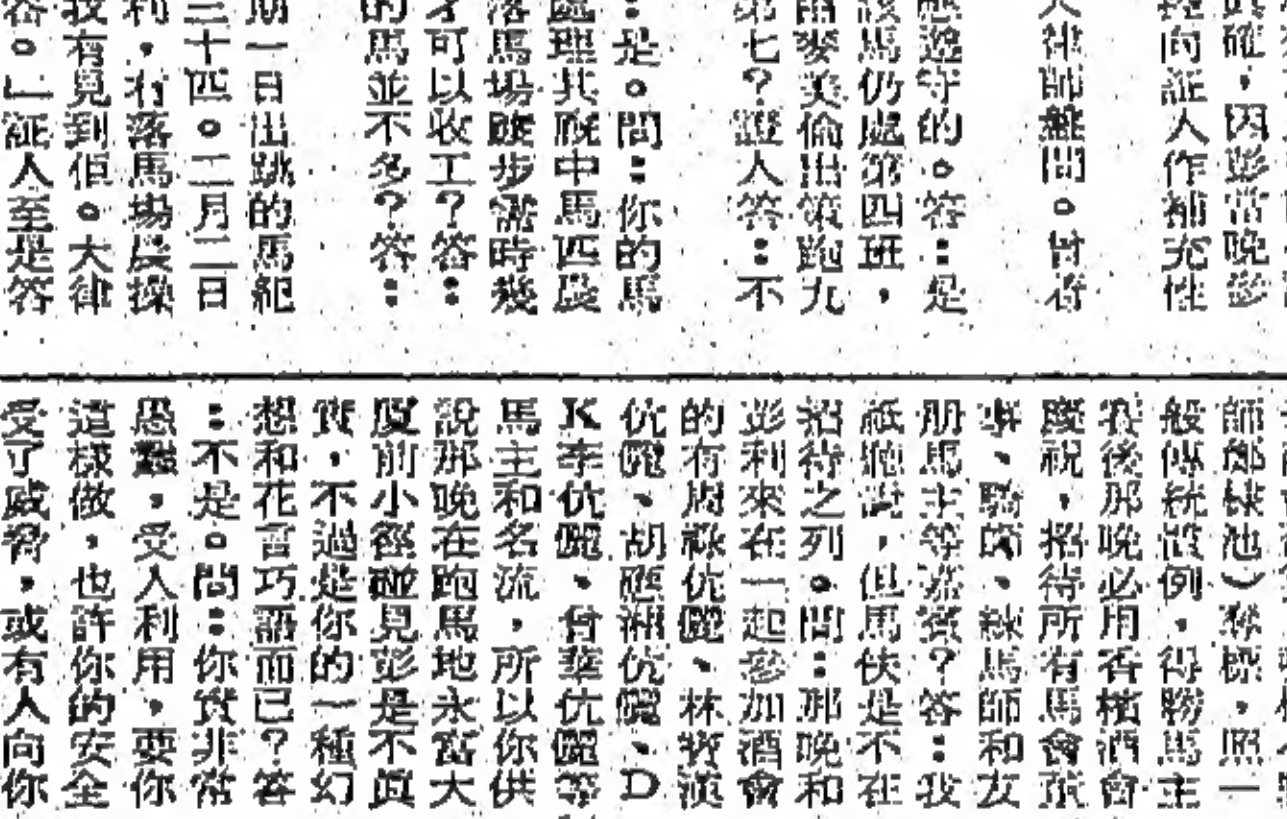 真確，因彭當晚彭
控向証人作補充性
大律師盤問。曾存
應遵守的。答：是
該馬仍處第四班，
爾麥美倫出策跑九
第七？證人答：不
：是。問：你的馬
處理其廐中馬匹晨
落馬場踱步需時幾
才可以收工？答：
的馬並不多？答：
期一日出跳的馬紀
三十匹。二月二日
利，冇落馬場晨操
我有見到佢。大律
答。」証人至是答
師鄧棣池）奪標，照一
般傳統設例，得勝馬主
賽後那晚必用香檳酒會
慶祝，招待所有馬會董
事、騎師、練馬師和友
朋馬主等嘉賓？答：我
祗聽說，但馬伕是不在
招待之列。問：那晚和
彭利來在一起參加酒會
的有周祿伉儷、林寶漢
伉儷、胡應洲伉儷、D
K李伉儷、曾華伉儷等
馬主和名流，所以你供
說那晚在跑馬地永富大
廈前小徑碰見彭是不眞
實，不過是你的一種幻
想和花言巧語而已？答
：不是。問：你實非常
愚蠢，受人利用，要你
這樣做，也許你的安全
受了威脅，或有人向你